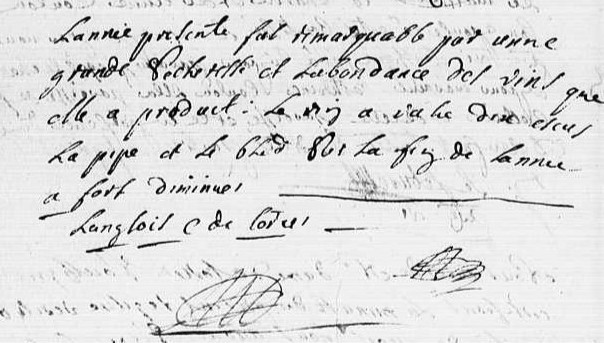 Lannee presente fut remarquable par unne
grande secheresse et Labondance des vins que
elle a produict. Le vin a valu dix escus
La pipe et le bled sur La fin de Lannee
a fort diminué
Langlois C de